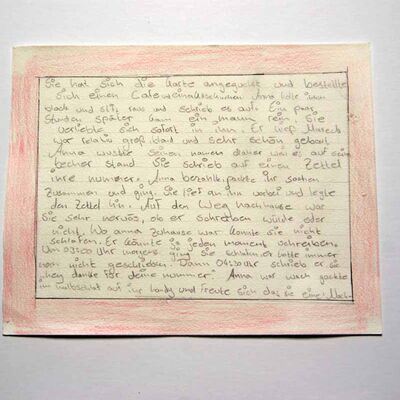 Sie hat sich die Karte angeguckt und bestellte
sich einen Cafe Anna holte ihren
block und stift raus und schrieb es auf. Ein paar
Stunden später kam ein mann rein, sie
verliebte sich sofort in ihn. Er hieß
war relativ groß, blond und sehr schön gebaut.
Anna wusste seinen namen daher weil es auf sein
becher stand. Sie schrieb auf einen Zettel
ihre nummer. Anna bezahlte, packte ihr sachen
zusammen und ging. Sie lief an ihn vorbei und legte
den Zettel hin. Auf den Weg nachhause war
sie sehr nervös, ob er schreiben würde oder
nicht. Wo anna zuhause war konnte sie nicht
schlafen. Er könnte in jeden moment schreiben.
Um 03:00 Uhr morgens ging sie schlafen er hatte immer
noch nicht geschrieben. Dann 04:30 Uhr schrieb er ihr
"hey danke für deine nummer" Anna war wach guckte
im halbschlaf auf ihr handy und freute sich das sie eine